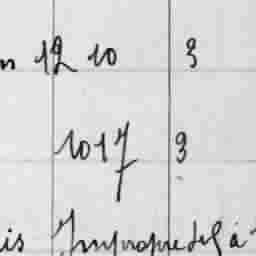 n 12 10 3
1017 3
is Impropre